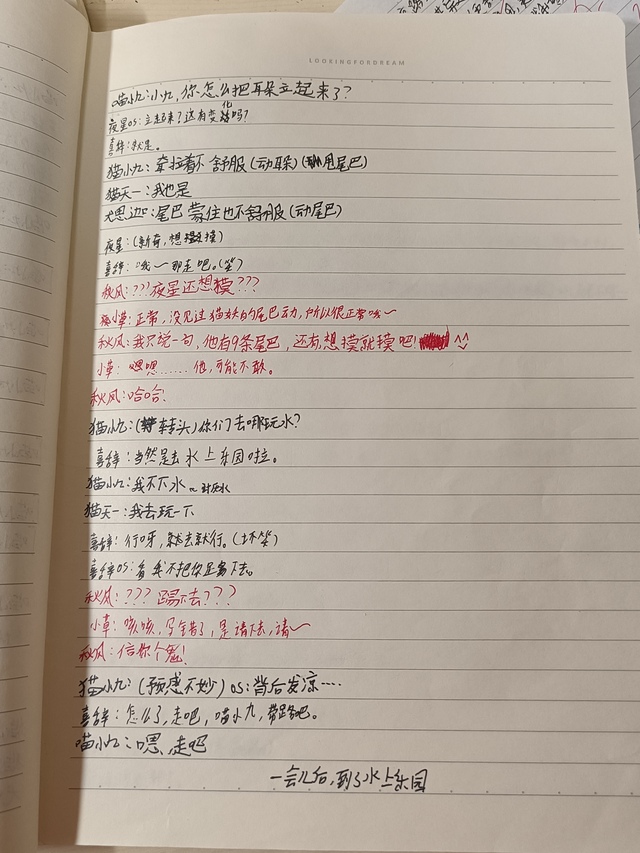 LOOKINGFORDREAM
喵小九:小九,你怎么把耳朵立起来了?
夜星OS:立起来?这有变化吗?
喜辞:就是。
猫小九:牵拉着不舒服(动耳朵)(甩尾巴)
猫天一:我也是
犬思边:尾巴蒙住也不舒服(动尾巴)
夜星:(新奇,想摸摸)
喜辞:哦~那走吧。(笑)
秋风:???夜星还想摸???
小草:正常,没见过猫妖的尾巴动,所以很正常哦~
秋风:我只说一句,他有9条尾巴,还有,想摸就摸吧!^^
小草:嗯嗯……他,可能不敢。
秋风:哈哈!
猫小九:(转头)你们去哪玩水?
喜辞:当然是去水上乐园啦。
猫小九:我不下水~讨厌水
猫天一:我去玩一下
喜辞:行呀,就去就行。(坏笑)
喜辞OS:看我不把你踢下去。
秋风:???踢下去???
小草:咳咳,写错了,是请下去,请~
秋风:信你个鬼!
猫小九:(预感不妙)OS:背后发凉……
喜辞:怎么了,走吧,喵小九,带路吧。
喵小九:嗯,走吧
一会儿后,到了水上乐园